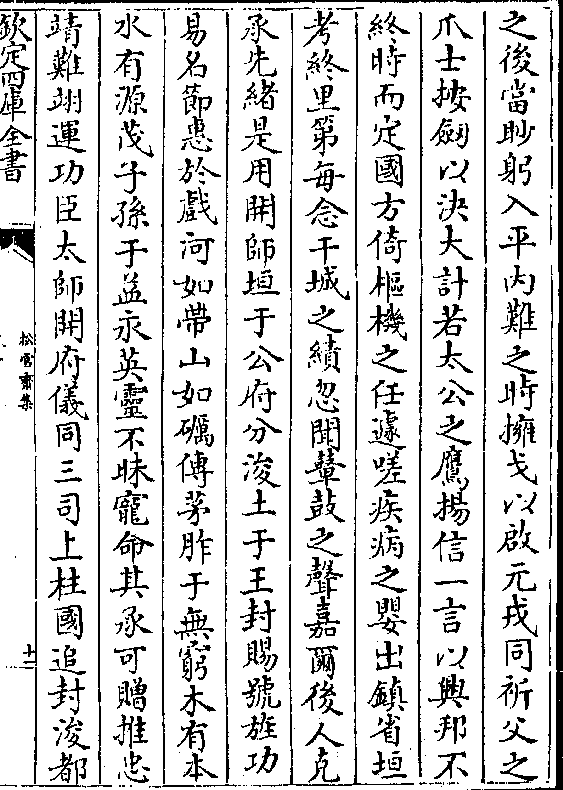 之後當眇躬入平内難之時擁戈以啟元戎同祈父之
爪士按劔以決大計若太公之鷹揚信一言以興邦不
終時而定國方倚樞機之任遽嗟疾病之嬰出鎮省垣
考終里第每念干城之績忽聞鼙鼓之聲嘉爾後人克
承先緒是用開師垣于公府分浚土于王封賜號旌功
易名節惠於戲河如帶山如礪傳茅胙于無窮木有本
水有源茂子孫于益永英靈不昧寵命其承可贈推忠
靖難翊運功臣太師開府儀同三司上柱國追封浚都
欽定四庫全書
松雪齋集
十二